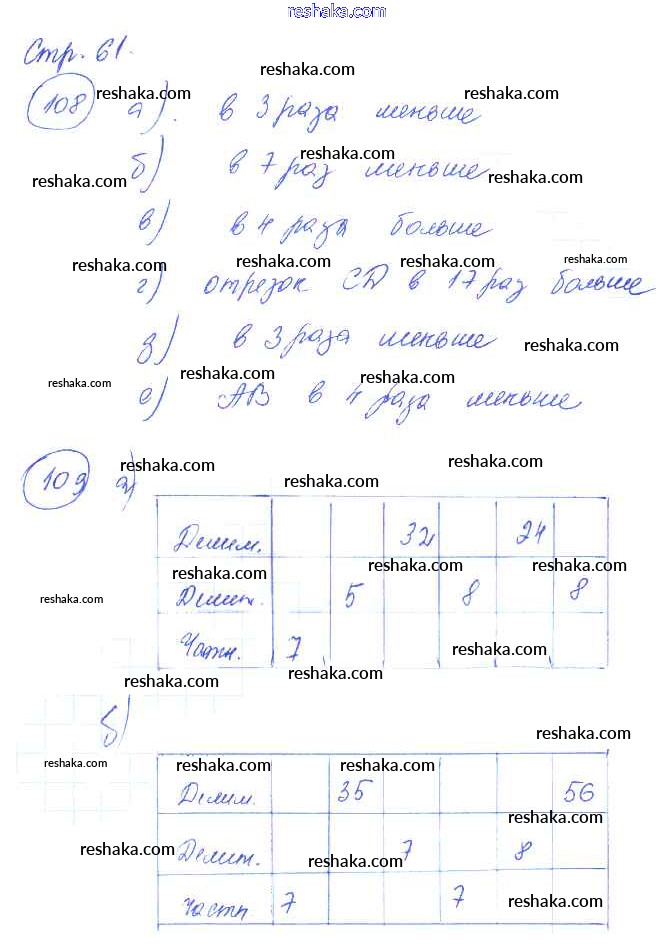 reshaka.com
Стр. 61.
reshaka.com
108 а) в 3 раза меньше
reshaka.com reshaka.com
б) в 7 раз меньше
reshaka.com reshaka.com reshaka.com
в) в 4 раза больше
reshaka.com reshaka.com reshaka.com
г) отрезок CD в 17 раз больше
д) в 3 раза меньше
reshaka.com
reshaka.com reshaka.com reshaka.com
е) AB в 4 раза меньше
reshaka.com reshaka.com
109 а)
reshaka.com
Делим. 32 24
reshaka.com reshaka.com reshaka.com
Делит. 5 8 8
reshaka.com
Частн. 7
reshaka.com
reshaka.com reshaka.com
б)
reshaka.com
reshaka.com reshaka.com reshaka.com
Делим. 35 56
reshaka.com
Делит. 7 8
reshaka.com reshaka.com
Частн 7 7
reshaka.com